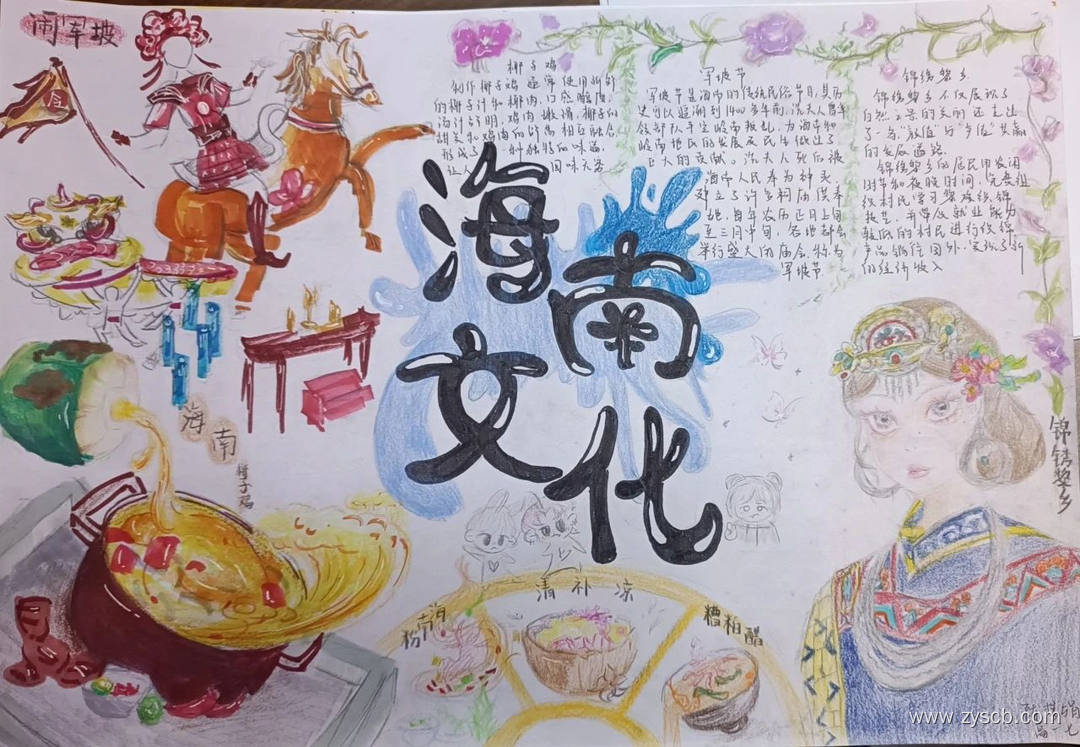 闹军坡
海南文化
椰子鸡
制作椰子鸡通常使用新鲜
的椰子汁和椰肉,口感醇厚,
汤汁分明,鸡肉嫩滑,椰子的
甜美和鸡肉的鲜美相互融合
形成了一种独特的味道,
让人回味无穷
军坡节
军坡节是海南的传统民俗节日,其历
史可以追溯到1400多年前,冼夫人曾率
领部队平定岭南叛乱,为海南和
岭南地区的发展及民生做出了
巨大的贡献。冼夫人死后被
海南人民奉为神灵,
建立了许多祠庙供奉
她,每年农历正月上旬
至三月中旬,各地都会
举行盛大闹庙会,称为
军坡节
锦绣黎乡
锦绣黎乡不仅展现了
自然之景的美丽,还走出
了一条"颜值"与"产值"共赢
的发展道路。
锦绣黎乡的居民用农闲
时节和夜晚时间,免费组
织村民学习黎族织锦
技艺,并带低就业能力
较低的村民进行织锦
产品销往国外,实现了新
的经济收入
海南
椰子鸡
锦绣黎乡
海南粉
清补凉
糟粕醋
www.zyscb.com